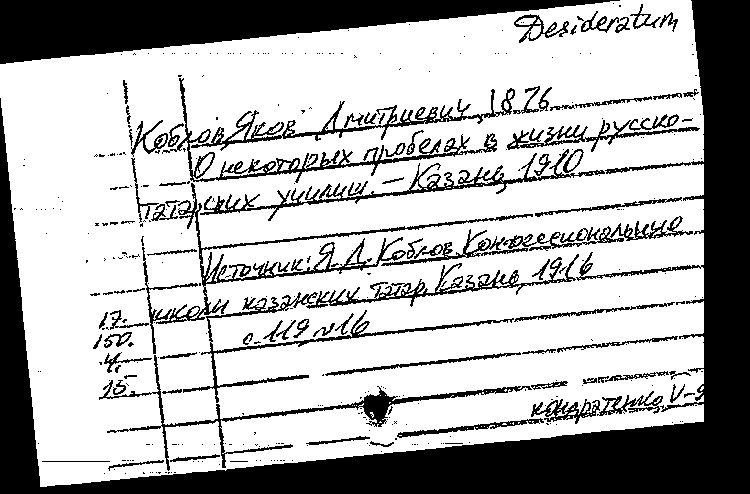 Desideratum
Коблов, Яков Дмитриевич, 1876
О некоторых пробелах в жизни русско-
татарских училищ. — Казань, 1910
Источник: Я. Д. Коблов. Конфессиональные
17. школы казанских татар. Казань, 1916
150. с. 119, №16
4.
15.
Кондратенко, V-9